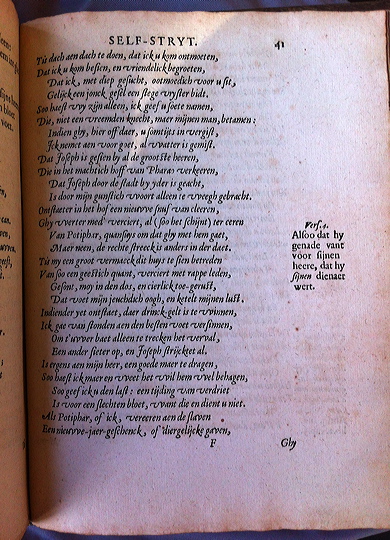 SELF-STRYT. 41
Tis dach aen dach te doen, dat ick u kom ontmoeten,
Dat ick u kom besien, en vriendelick begroeten,
Dat ick, met diep gesucht, ootmoedich voor u sit,
Gelijck een jonck gesel een stege vryster bidt.
Soo haest wy zijn alleen, ick geef u soete namen,
Die, niet een vreemden knecht, maer mijnen man, betamen:
Indien ghy, hier off daer, u somtijts in vergist,
Ick nemet aen voor goet, al watter is gemist.
Dat Joseph is gesien by al de grootste heeren,
Die in het machtich hoff van Pharao verkeeren,
Dat Joseph door de stadt by yder is geacht,
Is door mijn gunstich woort alleen te weegh gebracht.
Ontstaeter in het hof een nieuwe snuf van cleeren,
Ghy werter med' verciert, al (soo het schijnt) ter eeren
Van Potiphar, quansuys om dat ghy met hem gaet,
Maer neen, de rechte streeck is anders in der daet.
Tis my een groot vermaeck die huys te sien betreden
Van soo een geestich quant, verciert met rappe leden,
Gesont, moy in den dos, en cierlick toe-gerust,
Dat voet mijn jeuchdich oogh, en ketelt mijnen lust.
Indiender yet ontstaet, daer drinck-gelt is te winnen,
Ick gae van stonden aen den besten voet versinnen,
Om t'uwer baet alleen te trecken het verval,
Een ander sieter op, en Joseph strijcktet al.
Is ergens aen mijn heer, een goede maer te dragen,
Soo haest ick maer en weet het wil hem wel behagen,
Soo geef ick u den last: een tijding van verdriet
Is voor een slechten bloet, want die en dient u niet.
Als Potiphar, of ick, vereeren aen de slaven
Een nieuwe-jaer-geschenck, of diergelijcke gaven,
F Ghy
Vers. 4.
Alsoo dat hy
genade vant
voor sijnen
heere, dat hy
sijnen dienaer
wert.